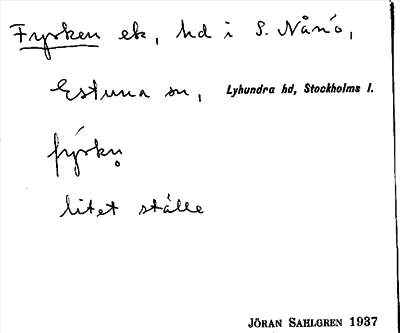 Fyrsken ek, hd i S. Nånö,
Estuna sn, Lyhundra hd, Stockholms l.
litet ställe
JÖRAN SAHLGREN 1937